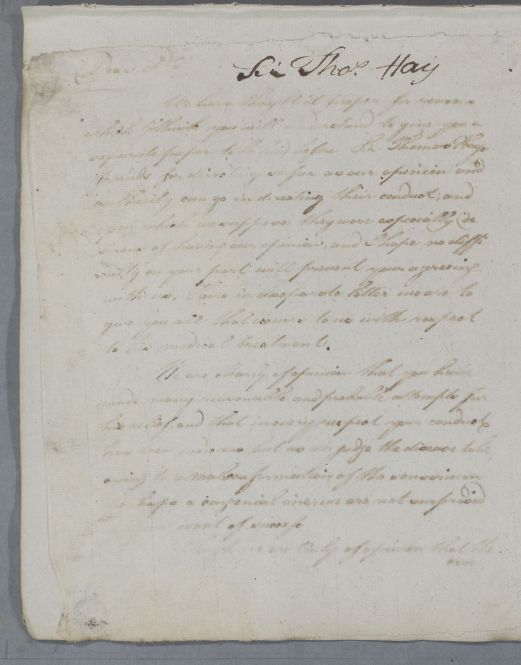 Dear
Sir Thos. Hay
We have thought it proper for reasons
which I think you will understand to give you a
separate paper to be laid before Sir Thomas Hays
friends for directing as far as our opinion and
authority can go in directing their conduct, and
upon which we suppose they were especially de
sirous of having our opinion, and I hope no diffi
culty on your part will prevent your agreeing
with us. Here in a separate letter we are to
give you all that occurs to us with respect
to the medical treatment.
We are clearly of opinion that you have
made many reasonable and probable attempts for
his relief, and that in every respect your conduct
has been judicious, but as we judge the disease to be
owing to a malconformation of the
perhaps a congenial one, we are not surprised
want of success
we are of opinion that the